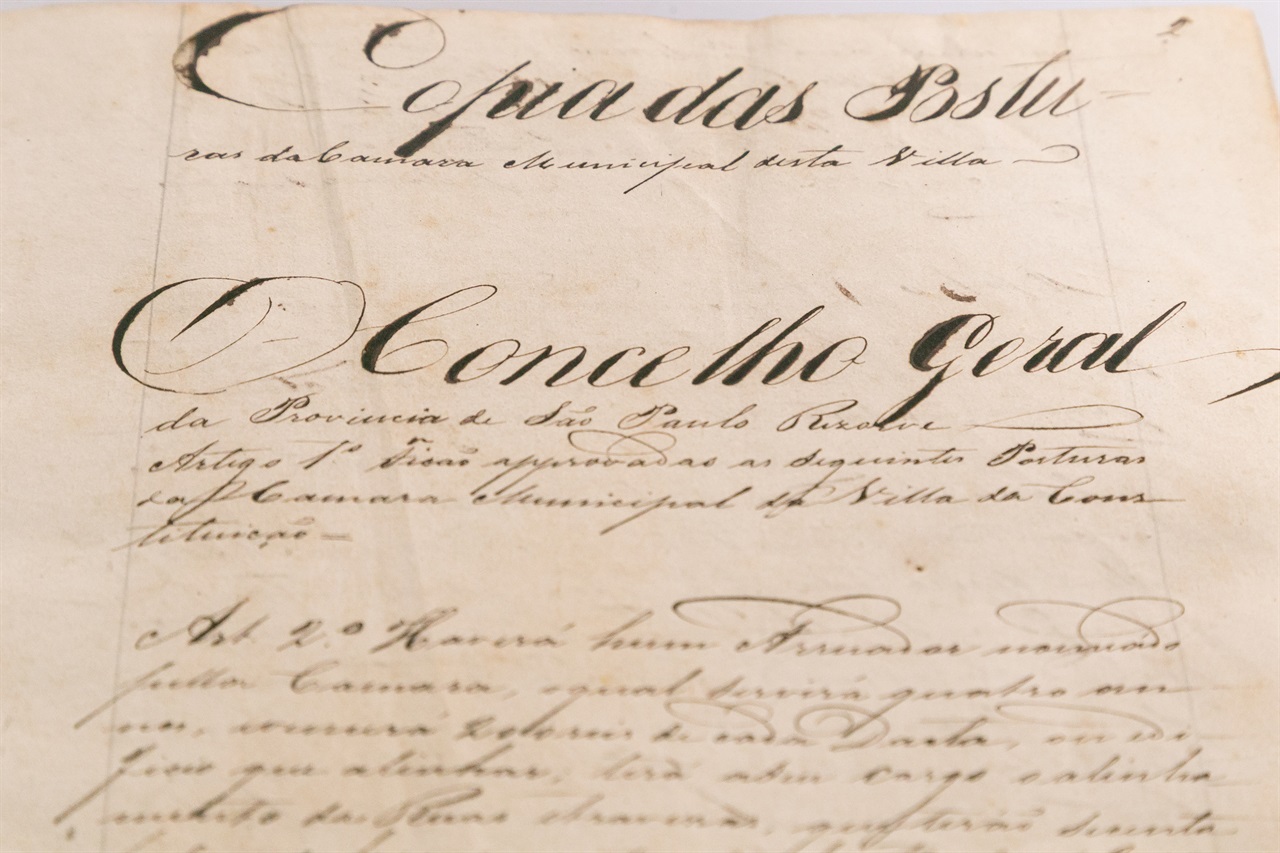 2
Copia das Postu-
ras da Camara Municipal desta Villa
O Concelho Geral
da Provincia de São Paulo Rezolve
Artigo 1.º Ficão approvadas as seguintes Posturas
da Camara Municipal da Villa da Cons
tituição
Art. 2.º Haverá hum Arruador nomiado
pella Camara, equal servirá quatro an
nos, vencerá de cada Dacta, ou edi-
ficio que alinhar, terá aseu cargo oalinha
mento das Ruas etravessas, que terão secenta